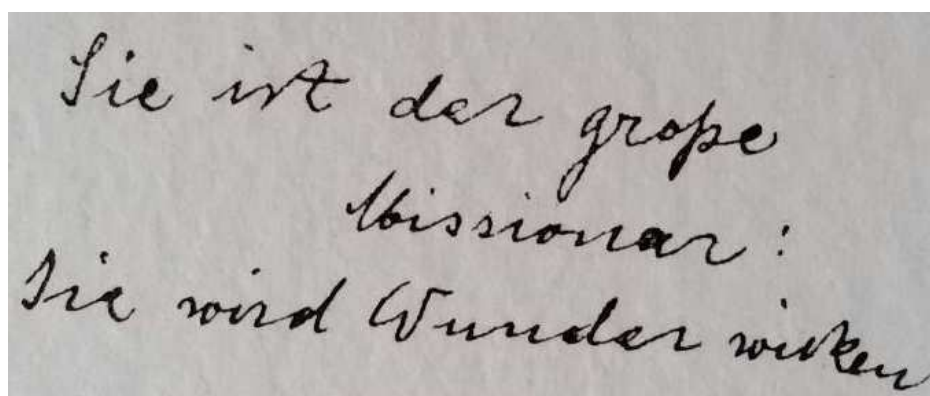 Sie ist der große
Missionar:
Sie wird Wunder wirken